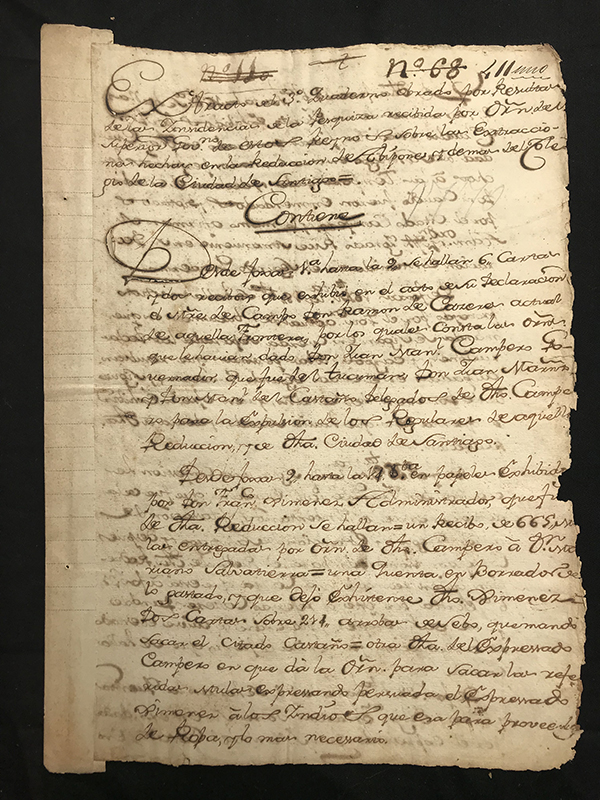 Nº 110 Nº 68 411
Extracto del 3º Quaderno obrado por Resultas
de las Insidencias de la Pesquiza recibida por Orñ. del
Superior Govno de estos Reynos sobre las Extraccio
nes hechas en la Reduccion de Abipones, y demas del Cole
gio de la Ciudad de Santiago =
Contiene
Desde foxas 1ª hasta la 2 se hallan 6 Cartas
y dos recibos que exhibió en el acto de su Declaracion
el Mre. de Campo Don Ramon de Caceres actual
de aquella Frontera, por los quales Consta las Orñs.
que le havian dado Don Juan Manl. Campero Go
vernador que fué del Tucuman, Don Juan Martinz
y Don Manl. del Castaño Delegados de dho. Campe
ro para la Expulsion de los Regulares de aquella
Reduccion, y de dha. Ciudad de Santiago.
Desde foxas 2 hasta la 18 en papeles Exhibidos
por Don Franco Ximenez Administrador que fué
de dha. Reduccion se hallan = un Recibo de 665 Mu
las entregadas por Orñ. de dho. Campero á Dn. Ma
riano Salvatierra = una quenta en Borrador de
lo gastado, y que dejó Exhistente dho. Ximenez =
Dos Cartas sobre 214 arrobas de sebo, que mandó
sacar el Citado Castaño = otra dha. del Expressado
Campero en que dá la Orñ. para sacar las refe
ridas Mulas Expressando persuada el Expressado
Ximenez á los Indios que era para proveerlos
de Ropa, y lo mas necessario.